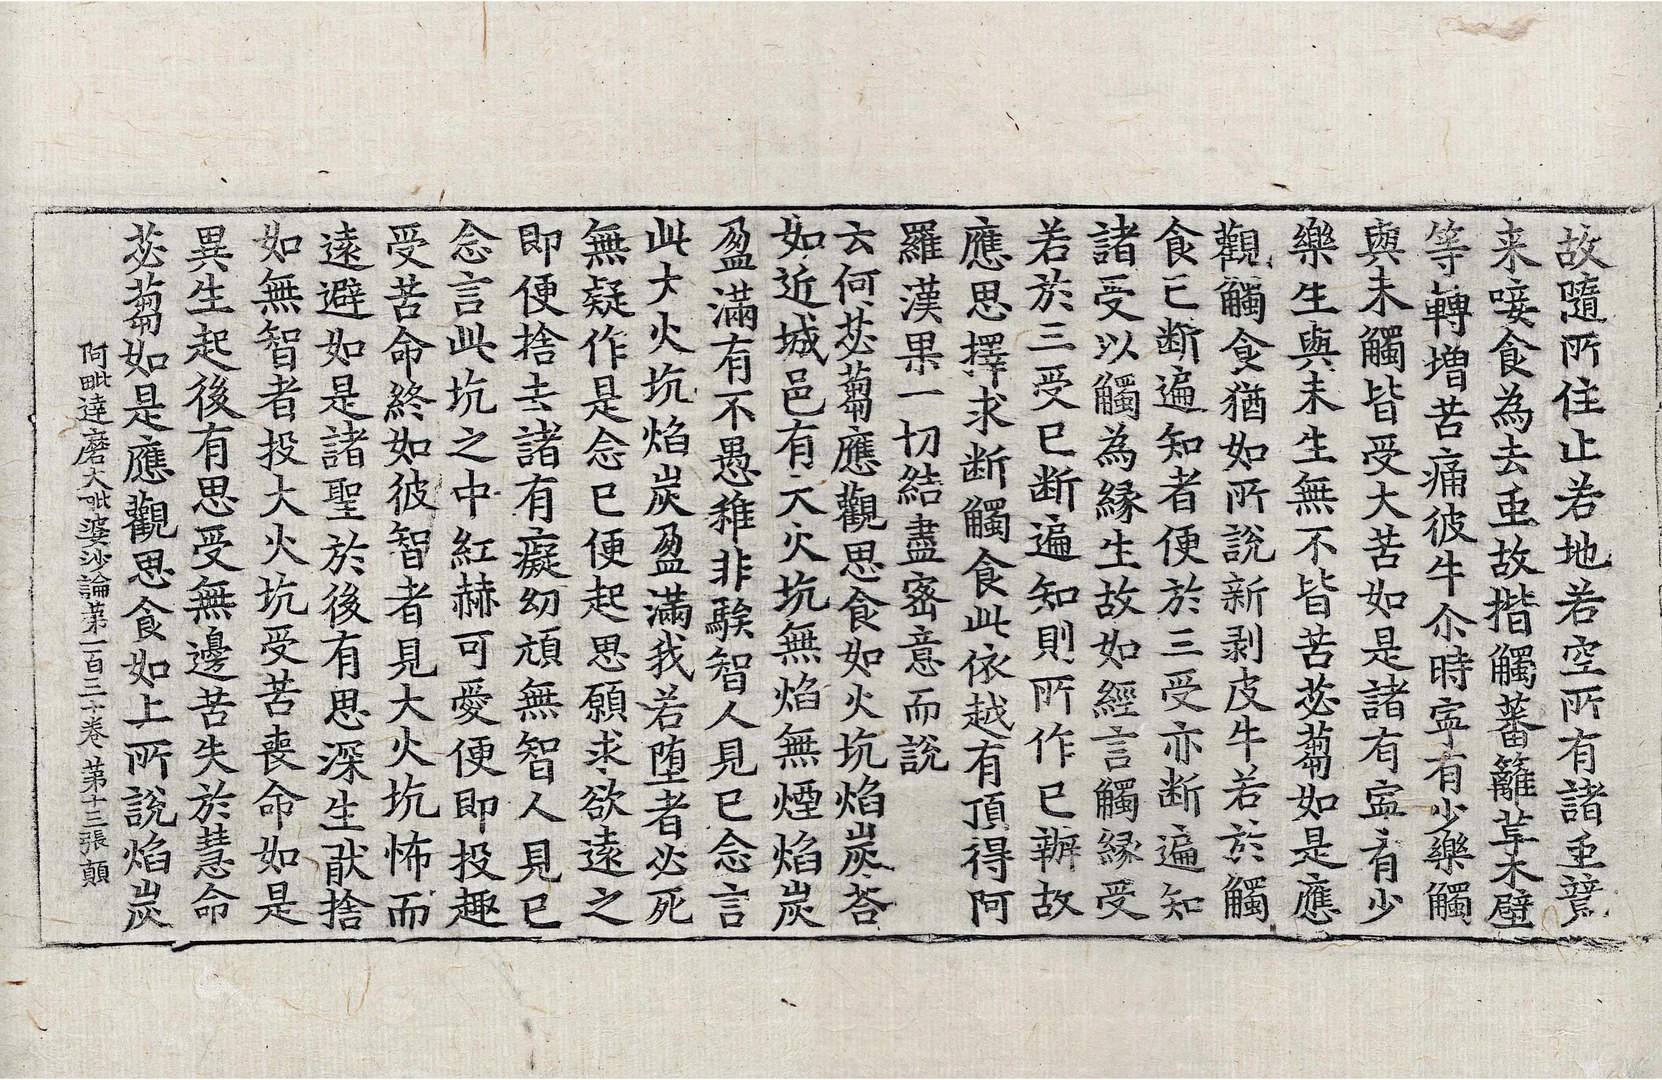 故隨所住止若地若空所有諸虫競
来唼食為去虫故揩觸蕃籬草木壁
等轉增苦痛彼牛尒時寜有少樂觸
與未觸皆受大苦如是諸有寍有少
樂生與未生無不皆苦苾蒭如是應
觀觸食猶如所說新剥皮牛若於觸
食已断遍知者便於三受亦断遍知
諸受以觸為縁生故如經言觸縁受
若於三受已断遍知則所作已辦故
應思擇求断觸食此依越有頂得阿
羅漢果一切結盡宻意而說
云何苾蒭應觀思食如火坑焰炭荅
如近城邑有大火坑無焰無煙焰炭
盈滿有不愚稚非騃智人見已念言
此大火坑焰炭盈滿我若堕者必死
無疑作是念已便起思願求欲遠之
即便捨去諸有癡幼頑無智人見已
念言此坑之中紅赫可愛便即投趣
受苦命終如彼智者見大火坑怖而
遠避如是諸聖於後有思深生猒捨
如無智者投大火坑受苦喪命如是
異生起後有思受無邊苦失於慧命
苾蒭如是應觀思食如上所說焰炭
阿毗達磨大毗婆沙論苐一百三十卷 苐十三張 顛